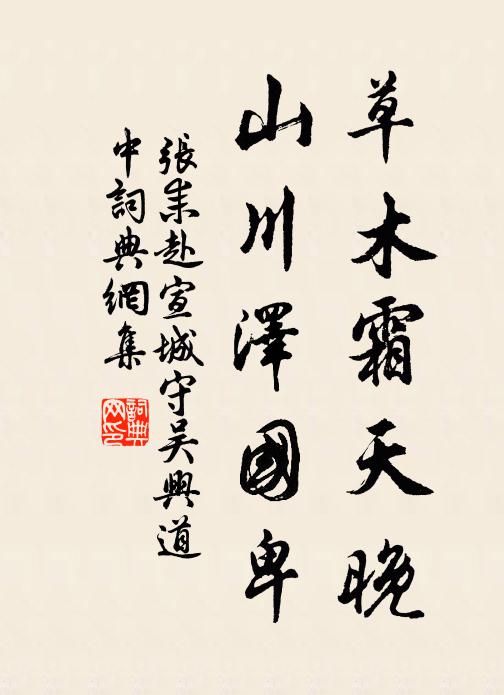 草木霜天晚
山川澤國卑
張耒赴宣城守吳興道
中詞典網集
詞典
网印